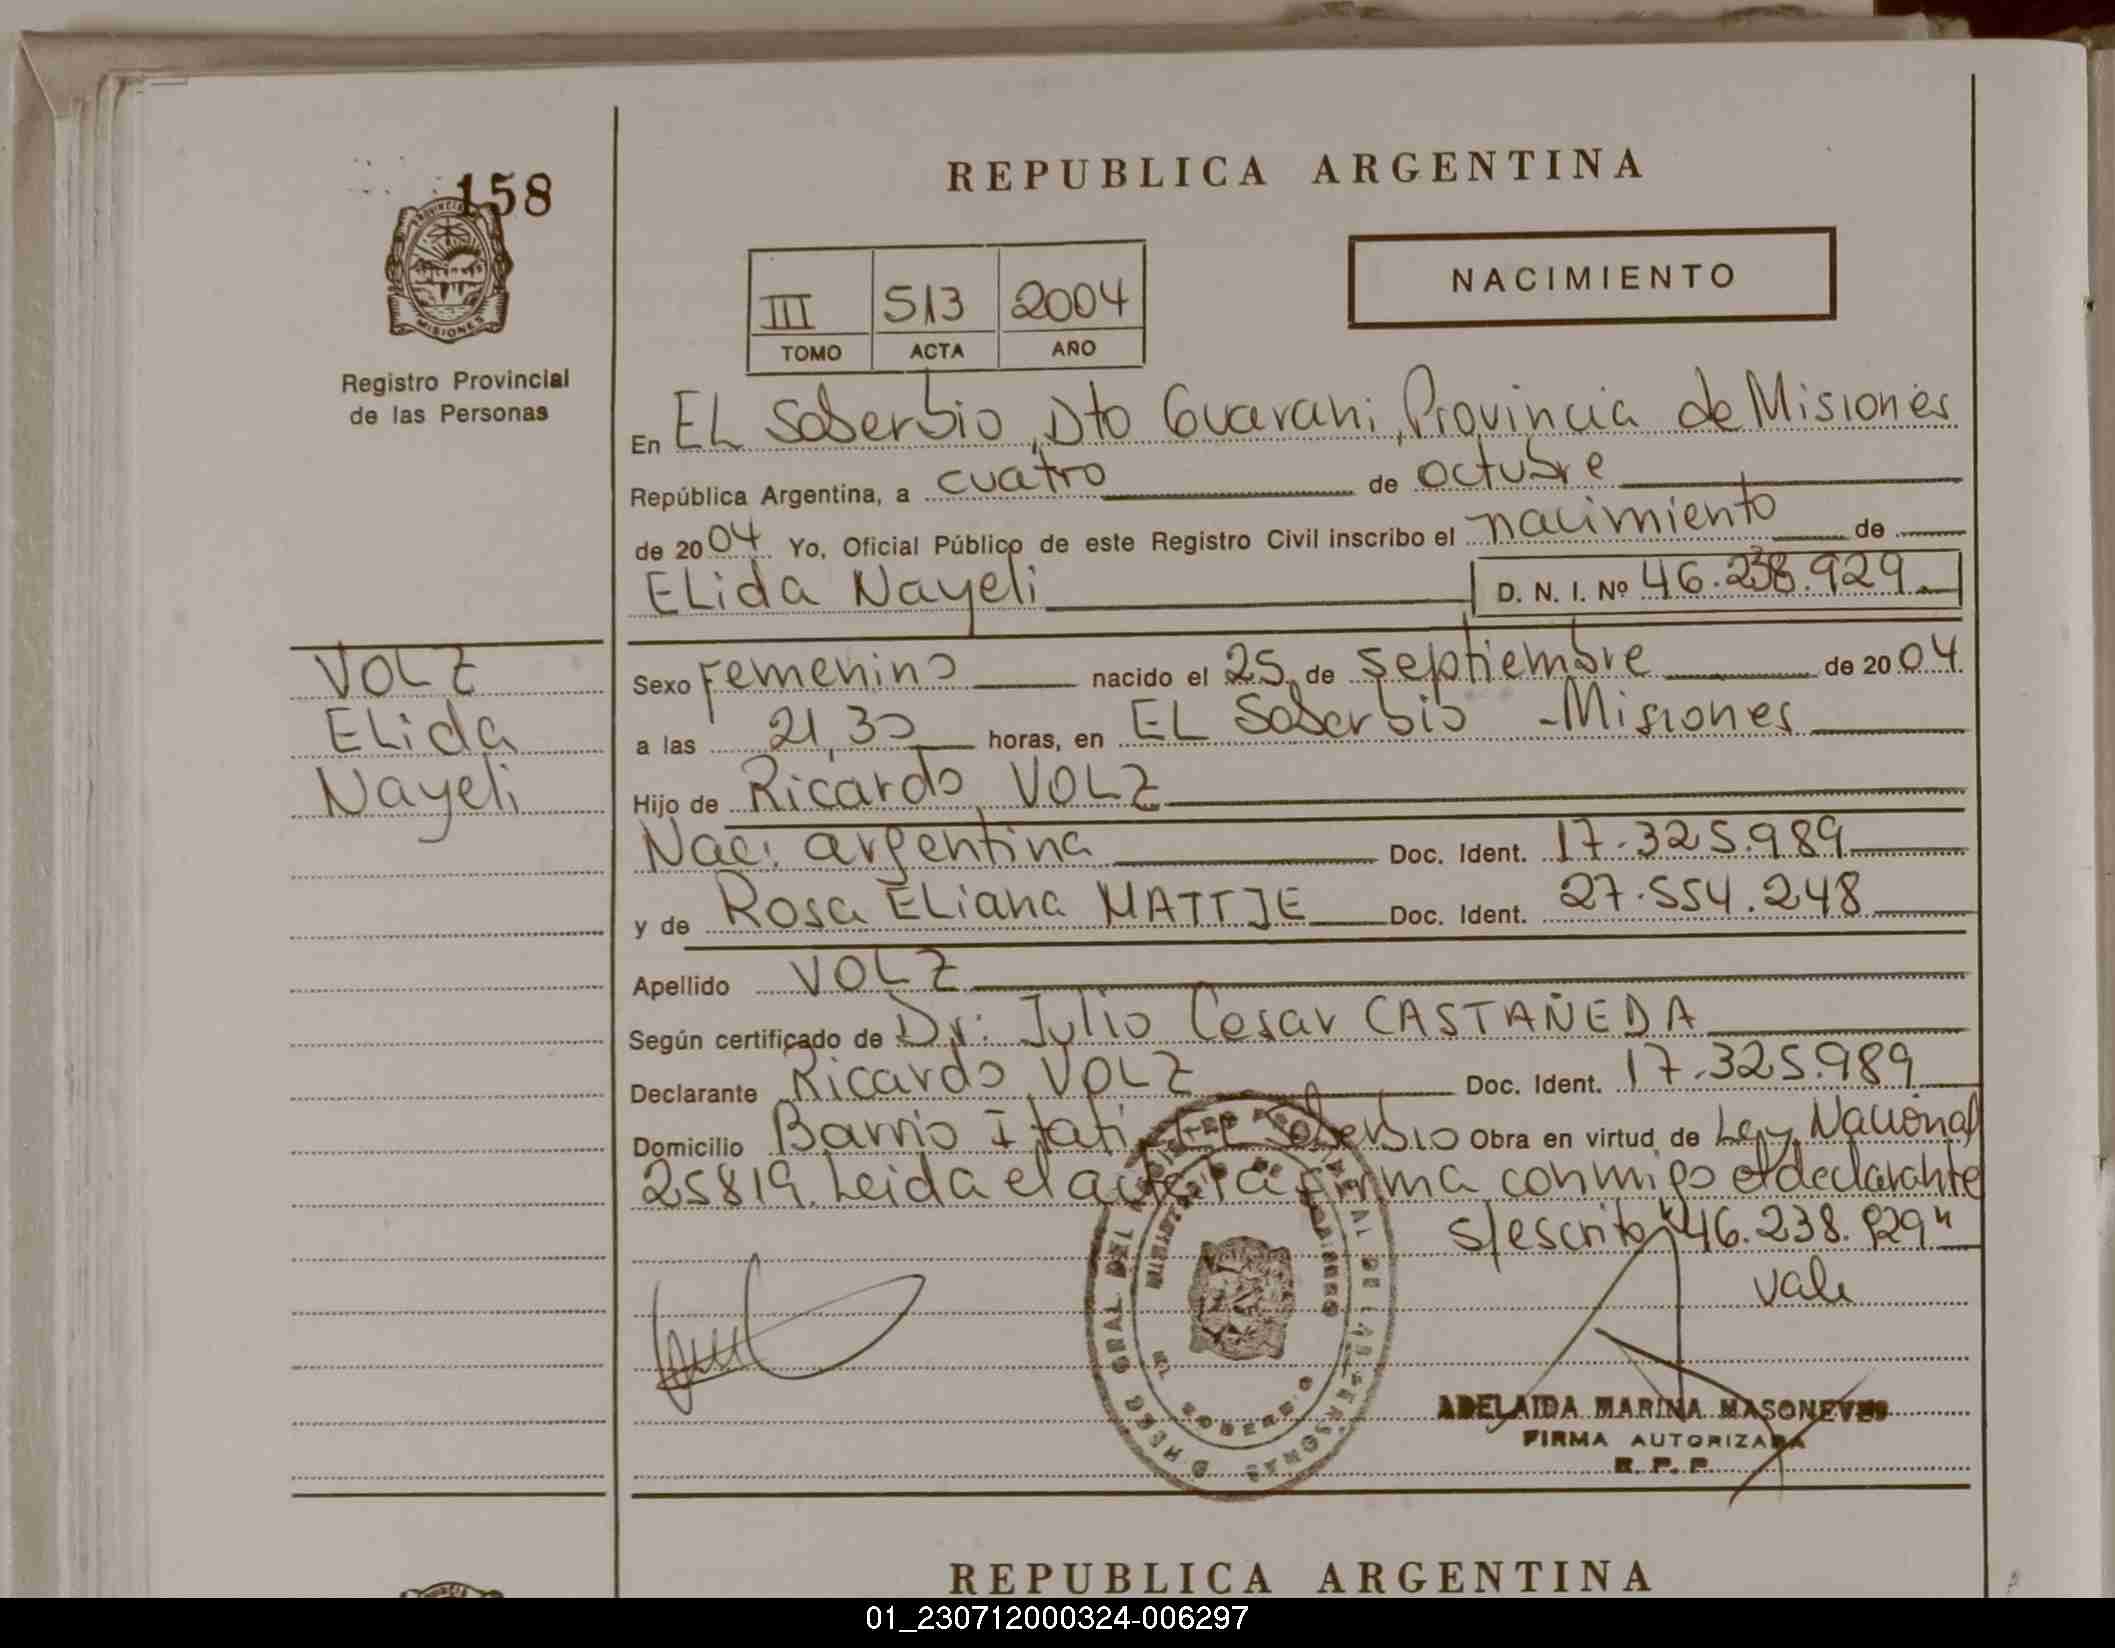 158
PROVINCIA
MISIONES
Registro Provincial
de las Personas
REPUBLICA ARGENTINA
NACIMIENTO
III 513 2004
TOMO ACTA AÑO
En EL Soberbio, Dto Guarani, Provincia de Misiones
República Argentina, a cuatro de octubre
de 2004 Yo, Oficial Público de este Registro Civil inscribo el nacimiento de
ELida Nayeli D. N. I. Nº 46.238.929
VOLZ
ELida
Nayeli
Sexo Femenino nacido el 25 de septiembre de 2004
a las 21,30 horas, en EL Soberbio - Misiones
Hijo de Ricardo VOLZ
Nac. argentina Doc. Ident. 17.325.989
y de Rosa ELiana MATTJE Doc. Ident. 27.554.248
Apellido VOLZ
Según certificado de Dr: Julio Cesar CASTAÑEDA
Declarante Ricardo VOLZ Doc. Ident. 17.325.989
Domicilio Barrio Itati, EL Soberbio Obra en virtud de Ley Nacional
25819. Leida el acta la firma conmigo el declarante
s/escrito "46.238.929"
vale
ADELAIDA MARINA MASONEVES
FIRMA AUTORIZADA
R. P. P.
REPUBLICA ARGENTINA
01_230712000324-006297